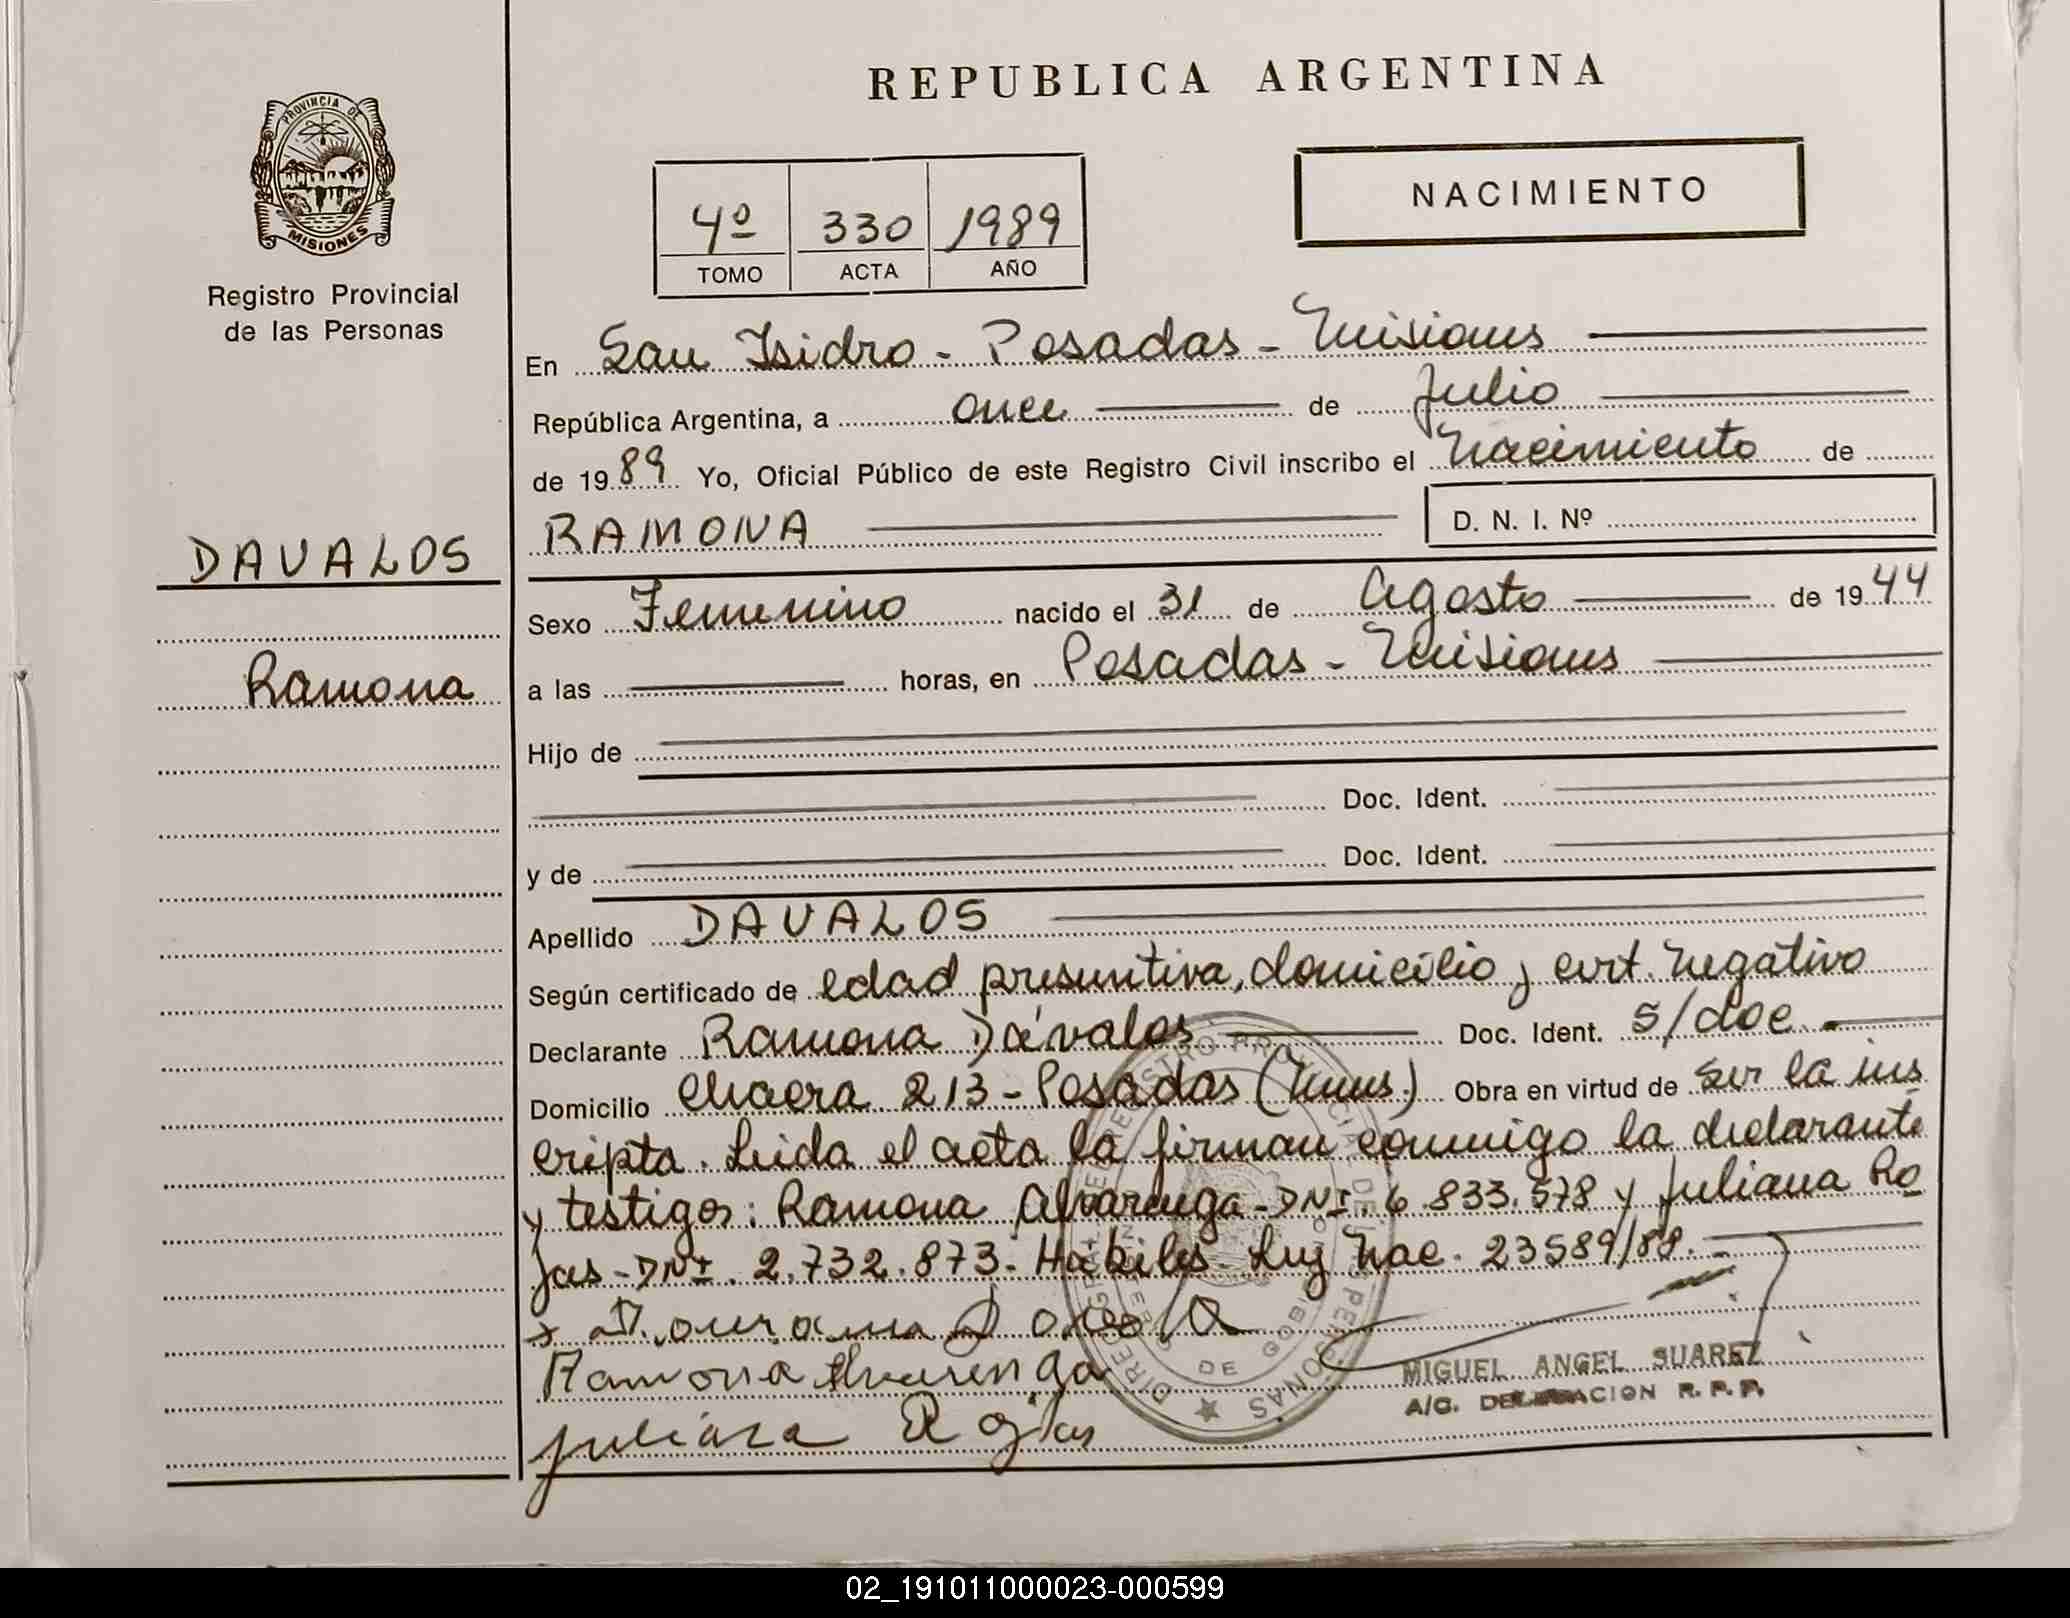 REPUBLICA ARGENTINA
PROVINCIA DE
MISIONES
Registro Provincial
de las Personas
NACIMIENTO
4º 330 1989
TOMO ACTA AÑO
En San Isidro - Posadas - Misiones
República Argentina, a once de Julio
de 1989 Yo, Oficial Público de este Registro Civil inscribo el Nacimiento de
DAVALOS
RAMONA D. N. I. Nº
Sexo Femenino nacido el 31 de Agosto de 1944
Ramona
a las horas, en Posadas - Misiones
Hijo de
Doc. Ident.
y de Doc. Ident.
Apellido DAVALOS
Según certificado de edad presuntiva, domicilio y cert. negativo
Declarante Ramona Dávalos Doc. Ident. S/doc.
Domicilio Chacra 213 - Posadas (Mnes.) Obra en virtud de ser la ins
cripta. Leida el acta la firman conmigo la declarante
y testigos: Ramona Alvarenga - DNI. 6.833.578 y Juliana Ro
jas - DNI. 2.732.873 - Hábiles - Ley Nac. 23589/88.
Ramona Alvarenga
MIGUEL ANGEL SUAREZ
A/C. DELEGACION R. P. P.
juliana Rojas
02_191011000023-000599